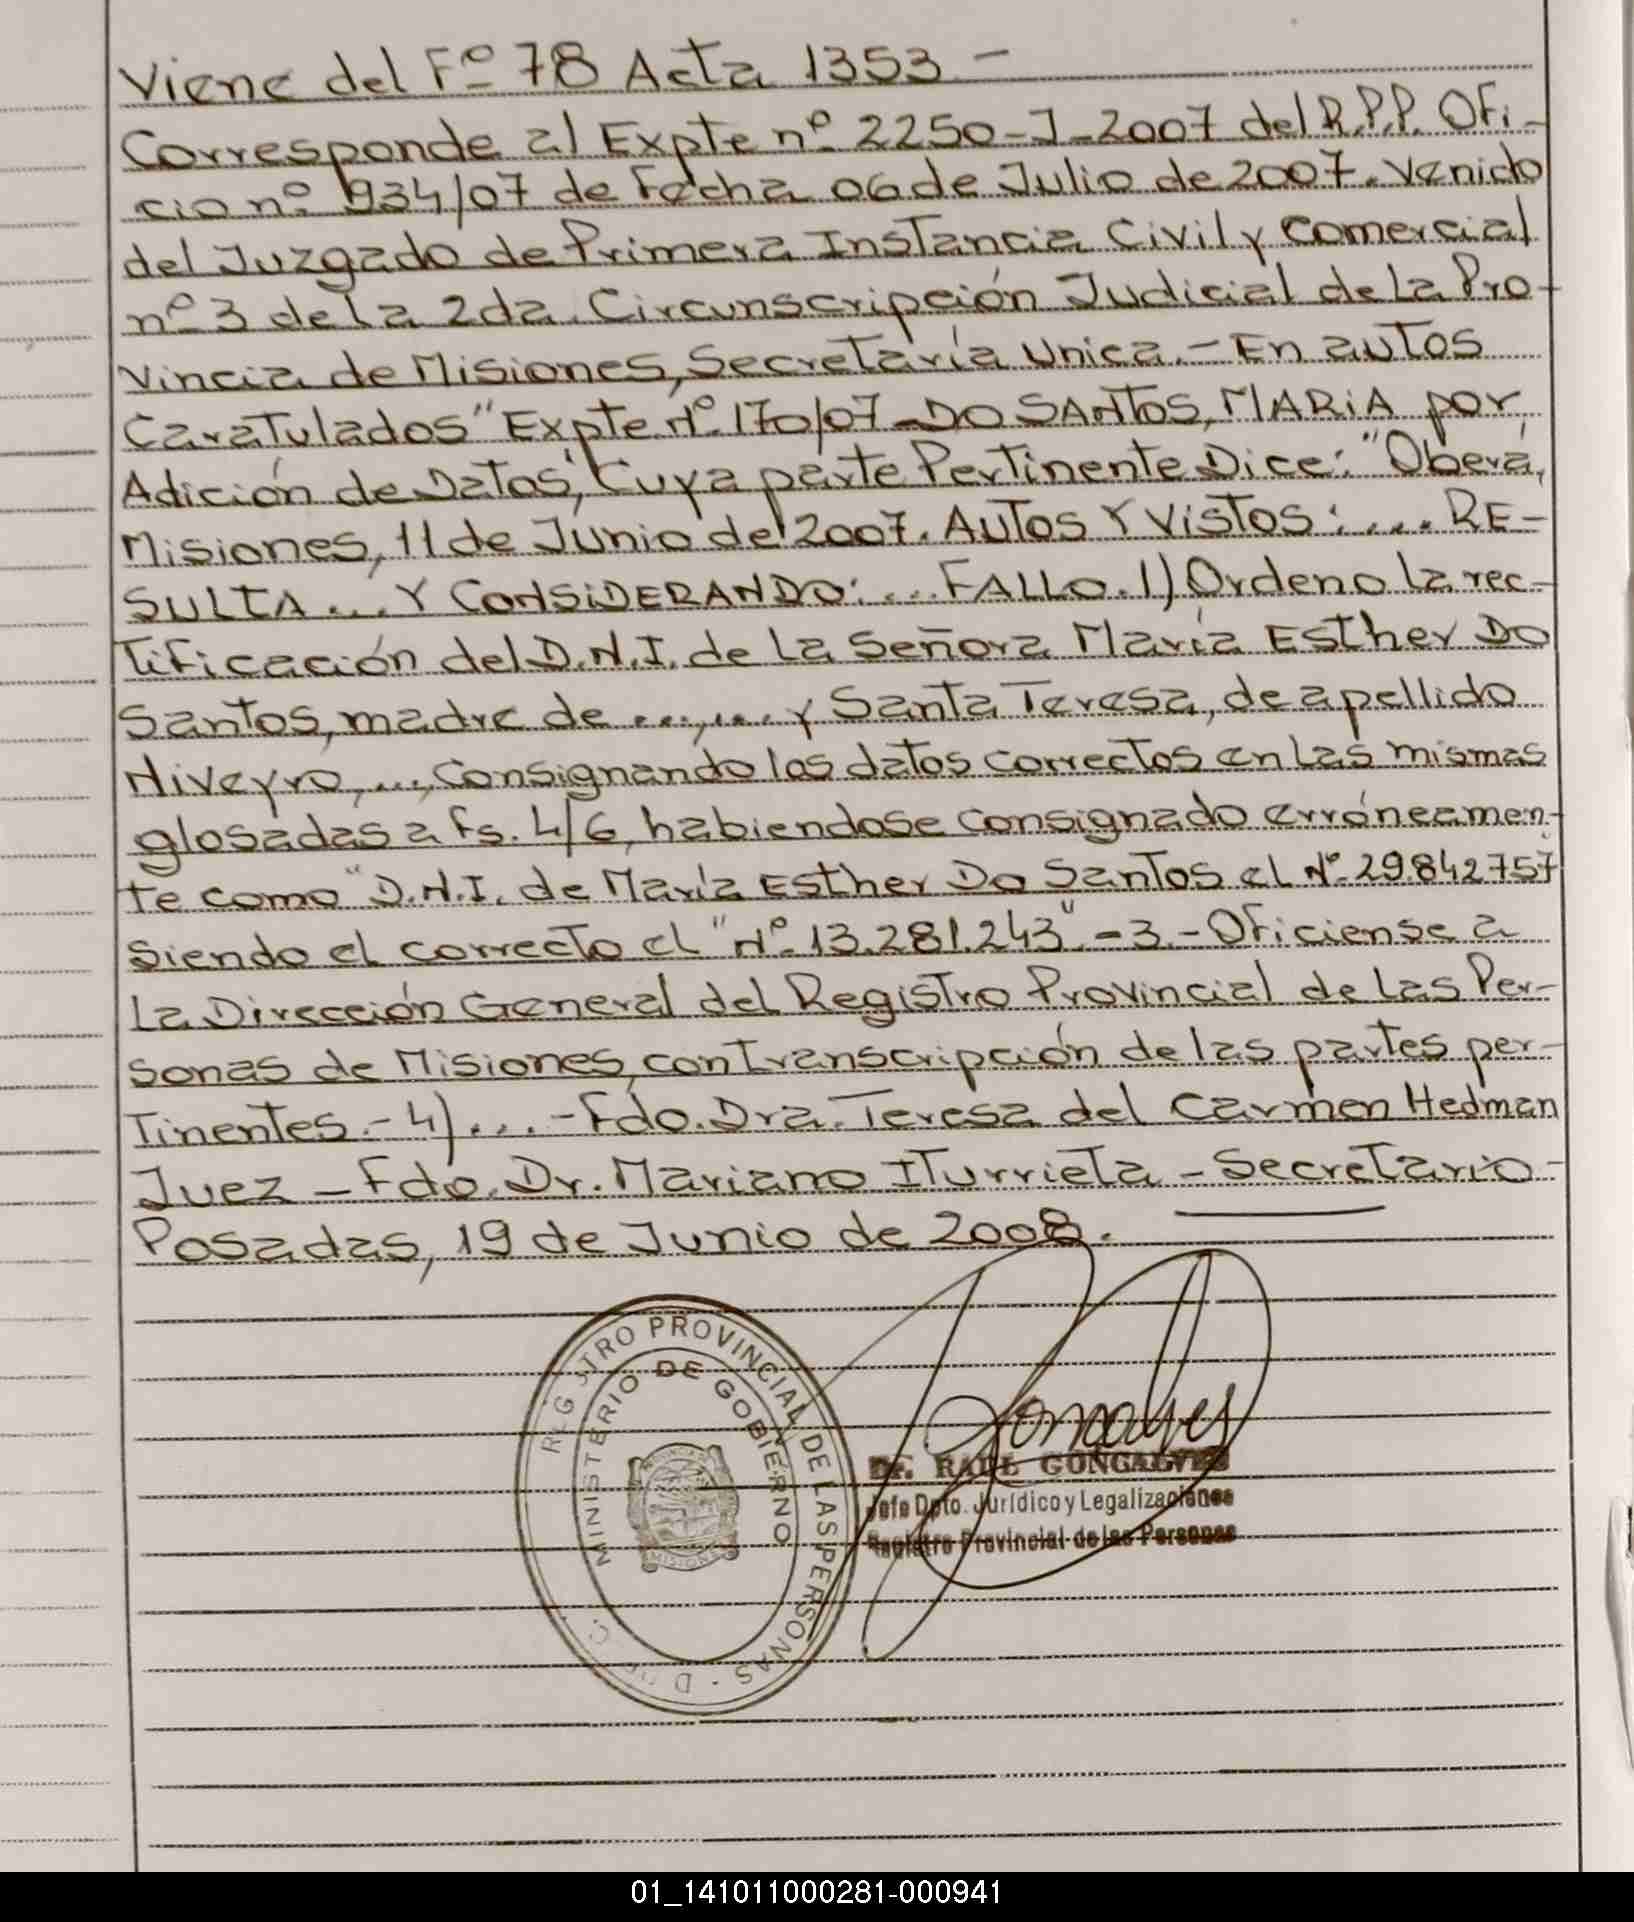 Viene del Fº 78 Acta 1353 -
Corresponde al Expte nº 2250-J-2007 del R.P.P. Ofi-
cio nº 934/07 de Fecha 06 de Julio de 2007. Venido
del Juzgado de Primera Instancia Civil y Comercial
nº 3 de la 2da. Circunscripción Judicial de La Pro-
vincia de Misiones, Secretaría Unica.- En autos
Caratulados "Expte. Nº 170/07-DO SANTOS, MARIA por
Adición de Datos", Cuya parte Pertinente Dice: "Oberá,
Misiones, 11 de Junio de 2007. AUTOS Y VISTOS: .... RE-
SULTA .... Y CONSIDERANDO: .... FALLO. 1) Ordeno La rec-
tificación del D.N.I. de La Señora María Esther Do
Santos, madre de ...., .... y Santa Teresa, de apellido
Niveyro, ...., Consignando los datos correctos en Las mismas
glosadas a Fs. 4/6, habiendose consignado erróneamen-
te como "D.N.I. de María Esther Do Santos el Nº 29.842.757"
siendo el correcto el "Nº 13.281.243".- 3.- Oficiense a
La Dirección General del Registro Provincial de Las Per-
sonas de Misiones, con transcripción de las partes per-
tinentes.- 4) .... - Fdo. Dra. Teresa del Carmen Hedman
Juez - Fdo. Dr. Mariano Iturrieta - Secretario -
Posadas, 19 de Junio de 2008.
REGISTRO PROVINCIAL DE LAS PERSONAS
MINISTERIO DE GOBIERNO
MISIONES
Goncalves
Dr. RAUL GONCALVES
Jefe Dpto. Jurídico y Legalizaciones
Registro Provincial de las Personas
01_141011000281-000941